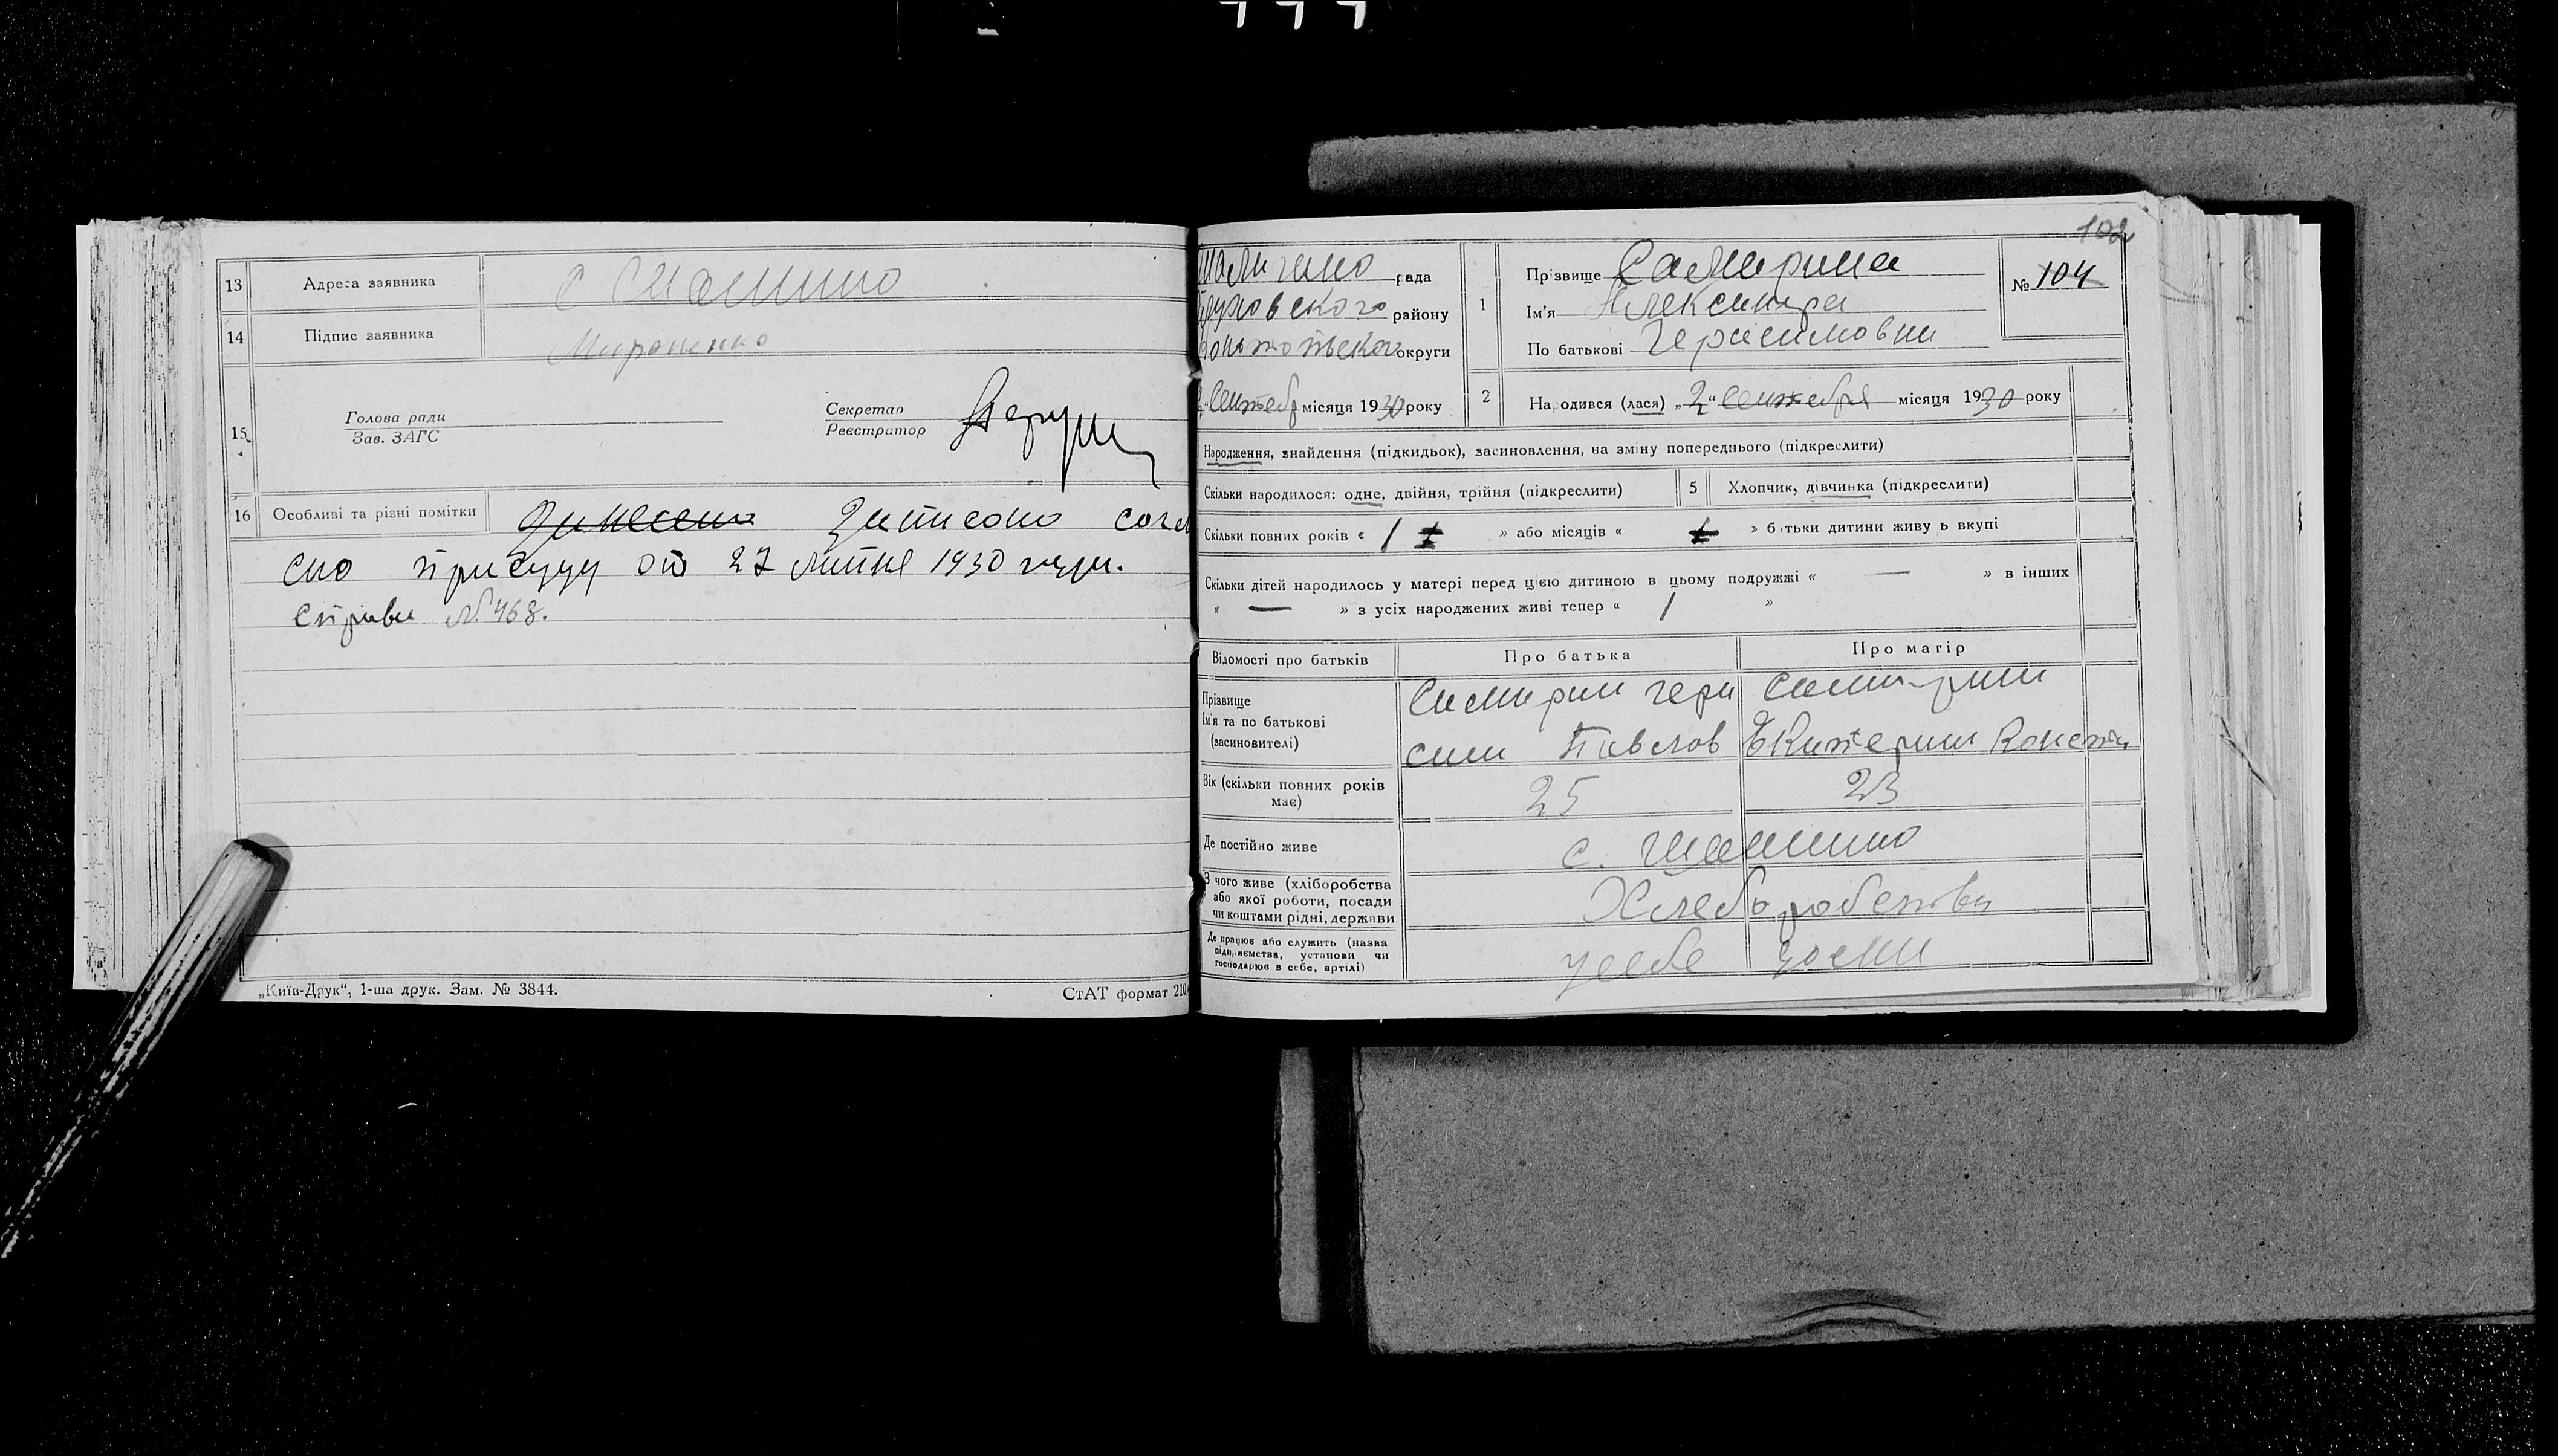 13 Адреса заявника с
14 Підпис заявника Мироненко
15 Голова ради
Зав. ЗАГС
Секретар
Реєстратор
16 Особливі та різні помітки Записано согла
сно присуду от 27 липня 1930 года.
Справа № 468.
„Київ-Друк“, 1-ша друк. Зам. № 3844.
СтАТ формат 210
102
рада
району
округи
2 Сентебр місяця 1930 року
1
Прізвище Самирина
Ім'я Александра
По батькові Герасимовна
№ 104
2 Народився (лася) „2“ Сентебря місяця 1930 року
Народження, знайдення (підкидьок), засиновлення, на зміну попереднього (підкреслити)
Скільки народилося: одне, двійня, трійня (підкреслити)
5 Хлопчик, дівчинка (підкреслити)
Скільки повних років « 1 » або місяців « » батьки дитини живуть вкупі
Скільки дітей народилось у матері перед цією дитиною в цьому подружжі « — » в інших
« — » з усіх народжених живі тепер « 1 »
Відомості про батьків
Про батька
Про матір
Прізвище
Ім'я та по батькові
(засиновителі)
Самирин Гера
сим Павлов
Самирина
Екатерина
Вік (скільки повних років
має)
25
23
Де постійно живе
с.
З чого живе (хліборобства
або якої роботи, посади
чи коштами рідні, держави
Хлеборобство
Де працює або служить (назва
підприємства, установи чи
господарює в себе, артілі)
у себе дома